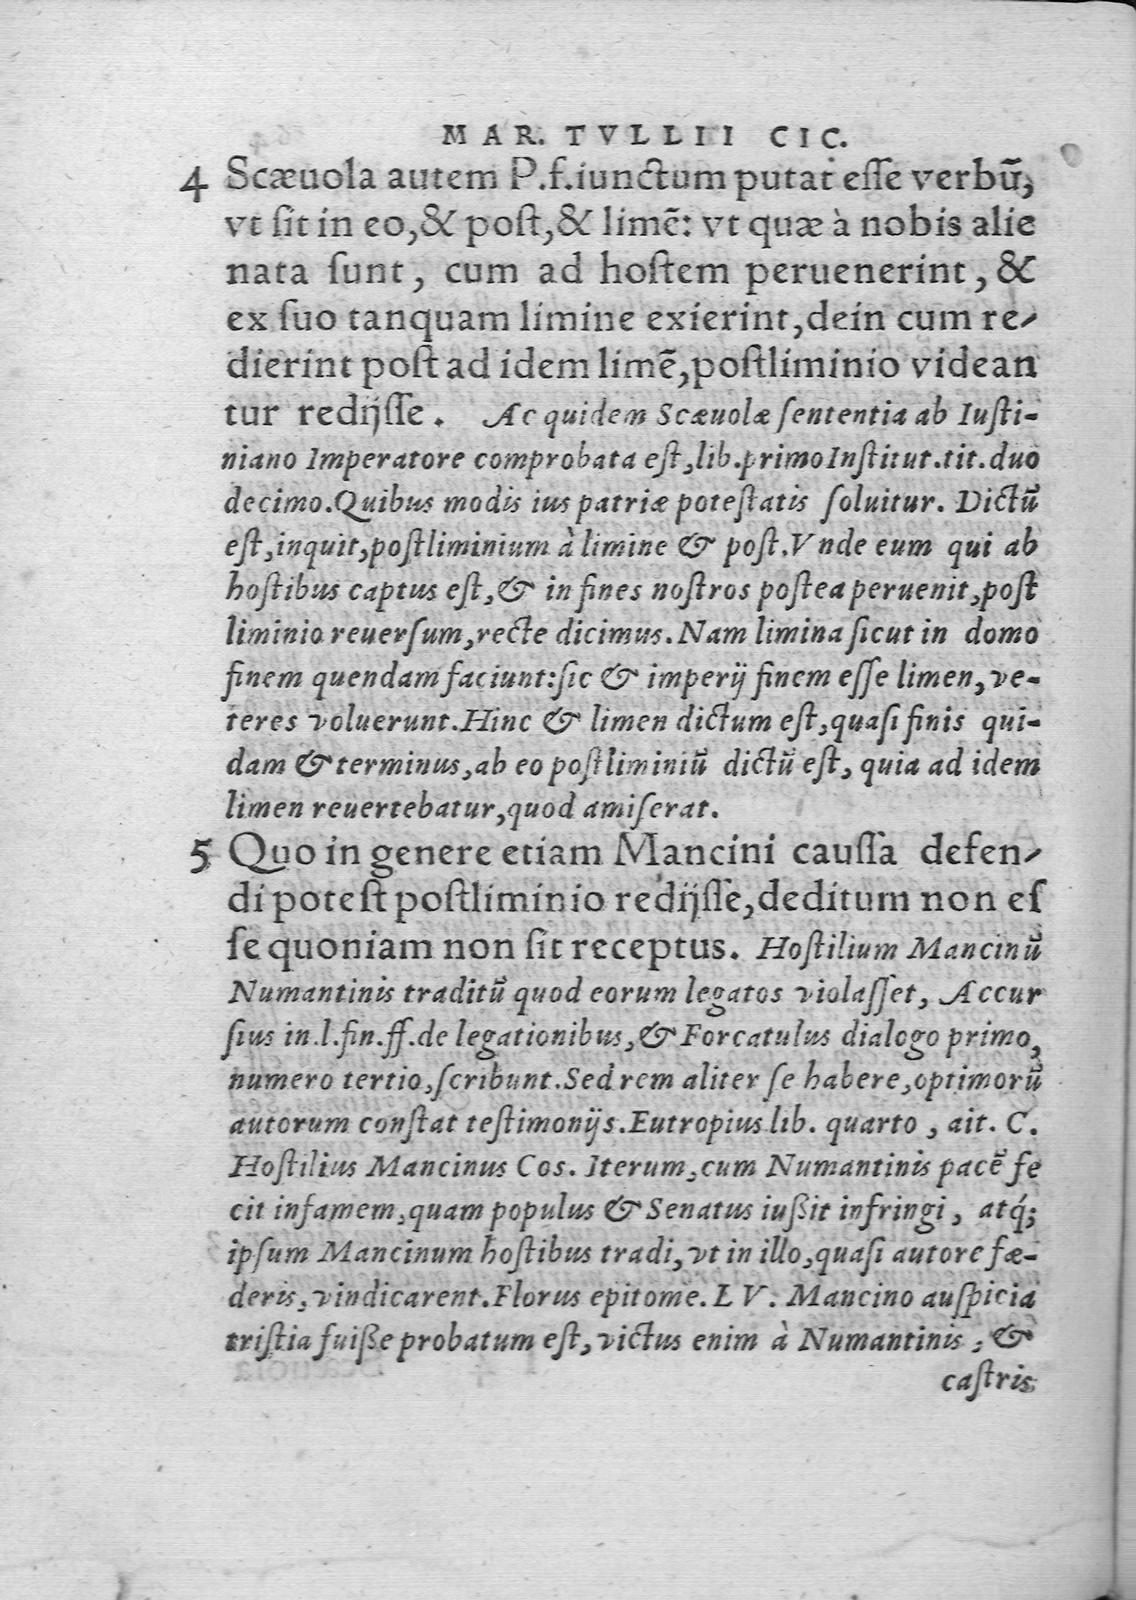 MAR. TVLLII CIC.
4 Scæuola autem P.f.iunctum putat eſſe verbũ,
vt ſit in eo,& poſt,& limẽ: vt quæ à nobis alie
nata ſunt, cum ad hoſtem peruenerint, &
ex ſuo tanquam limine exierint,dein cum re-
dierint poſt ad idem limẽ,poſtliminio videan
tur redijſſe. Ac quidem Scæuolæ ſententia ab Iuſti-
niano Imperatore comprobata eſt,lib.primo Inſtitut.tit.duo
decimo.Quibus modis ius patriæ poteſtatis ſoluitur. Dictũ
eſt,inquit,poſtliminium à limine & poſt.Vnde eum qui ab
hoſtibus captus eſt,& in fines noſtros poſtea peruenit,poſt
liminio reuerſum,recte dicimus.Nam limina ſicut in domo
finem quendam faciunt:ſic & imperij finem eſſe limen, ve-
teres voluerunt.Hinc & limen dictum eſt,quaſi finis qui-
dam & terminus,ab eo poſtliminiũ dictũ eſt, quia ad idem
limen reuertebatur,quod amiſerat.
5 Quo in genere etiam Mancini cauſſa defen-
di poteſt poſtliminio redijſſe,deditum non eſ
ſe quoniam non ſit receptus. Hoſtilium Mancinũ
Numantinis traditũ quod eorum legatos violaſſet, Accur
ſius in.l.fin.ff.de legationibus,& Forcatulus dialogo primo,
numero tertio,ſcribunt.Sed rem aliter ſe habere,optimorũ
autorum conſtat teſtimonijs.Eutropius lib. quarto, ait. C.
Hoſtilius Mancinus Cos. Iterum,cum Numantinis pacẽ fe
cit infamem,quam populus & Senatus iußit infringi, atq́;
ipſum Mancinum hoſtibus tradi,vt in illo,quaſi autore fœ-
deris,vindicarent.Florus epitome.LV. Mancino auſpicia
triſtia fuiße probatum eſt, victus enim à Numantinis, &
caſtris